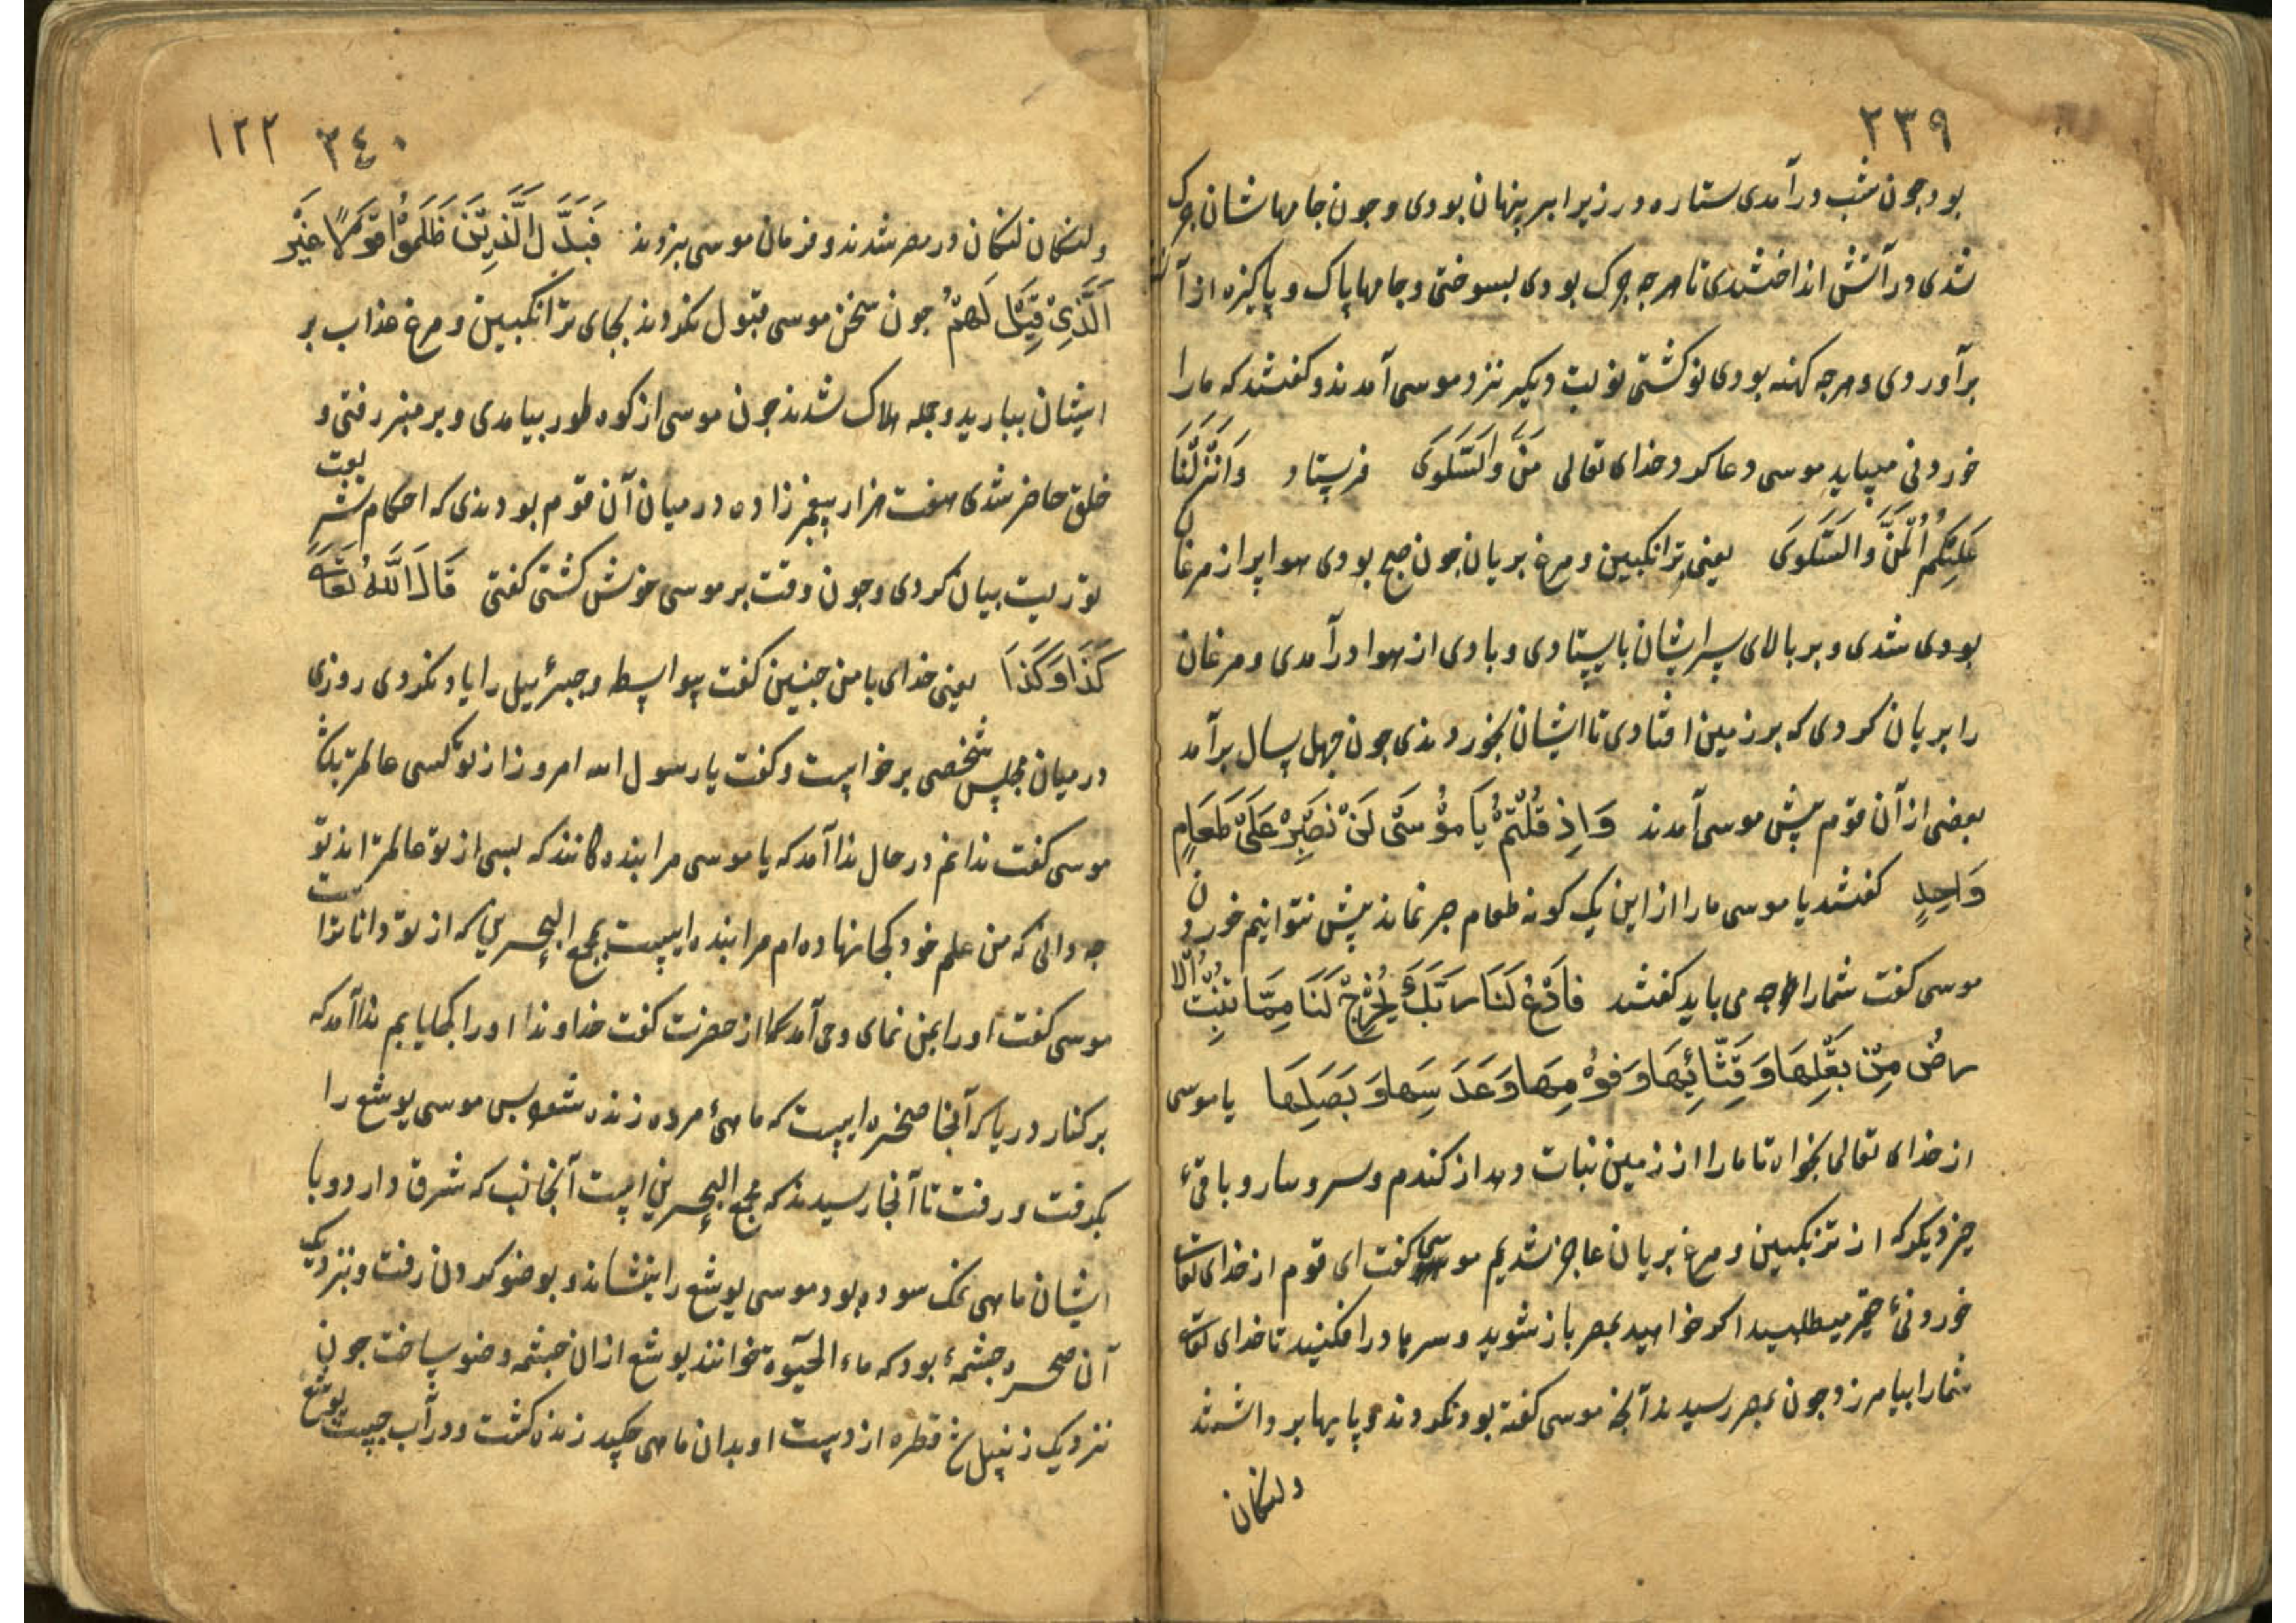 ٢٣٩
بود چون شب درآمدی ستاره در زیر ابر پنهان بودی و چون جامهاشان چرک
شدی در آتش انداختندی تا هرچه چرک بودی بسوختی و جامها پاک و پاکیزه از آ
برآوردی و هرچه کهنه بودی نو کشتی نوبت دیکر نزد موسی آمدند و کفتند که ما را
خوردنی میباید موسی دعا کرد خدای تعالی مَنَّ وَالسَّلْوَی فرستاد وَاَنْزَلْنَا
عَلَیْکُمُ الْمَنَّ وَالسَّلْوَی یعنی ترانکبین و مرغ بریان چون صبح بودی هوا پر از مرغان
بودی شدی و بر بالای سر ایشان بایستادی و بادی از هوا درآمدی و مرغان
را بریان کردی که بر زمین افتادی تا ایشان بخوردندی چون چهل سال برآمد
بعضی از آن قوم پیش موسی آمدند وَاِذْ قُلْتُمْ یَا مُوْسَی لَنْ نَصْبِرَ عَلَی طَعَامٍ
وَاحِدٍ کفتند یا موسی ما را از این یک کونه طعام صبر نماند پیش نتوانیم خوردن
موسی کفت شما را چه می باید کفتند فَادْعُ لَنَا رَبَّکَ یُخْرِجْ لَنَا مِمَّا تُنْبِتُ الْا
رضُ مِنْ بَقْلِهَا وَقِثَّائِهَا وَفُوْمِهَا وَعَدَسِهَا وَبَصَلِهَا یا موسی
از خدای تعالی بخواه تا ما را از زمین نبات دهد از کندم و سیر و پیاز و باقیء
چیز دیکر که از ترنکبین و مرغ بریان عاجز شدیم موسی کفت ای قوم از خدای تعالی
خوردنیء حقیر میطلبید اکر خواهید بمصر باز شوید و سرها در افکنید تا خدای تعالی
شما را بیامرزد چون بمصر رسیدند آنچه موسی کفته بود نکردند و پایها برداشتند
و لنکان
٢٤٠ ١٢٢
و لنکان لنکان در مصر شدند و فرمان موسی نبردند فَبَدَّلَ الَّذِیْنَ ظَلَمُوْا قَوْلًا غَیْرَ
الَّذِیْ قِیْلَ لَهُمْ چون سخن موسی قبول نکردند بجای ترانکبین و مرغ عذاب بر
ایشان ببارید و جمله هلاک شدند چون موسی از کوه طور بیامدی و بر منبر رفتی و
خلق حاضر شدی هفت هزار پیغمبرزاده در میان آن قوم بودندی که احکام شریعت
توریت بیان کردی و چون وقت بر موسی خوش کشتی کفتی قَالَ اللّٰهُ تَعَالَی
کَذَا وَکَذَا یعنی خدای با من چنین کفت بیواسطه و جبرئیل را یاد نکردی روزی
در میان مجلس شخصی برخاست و کفت یا رسول الله امروز از تو کسی عالمتر باشد
موسی کفت ندانم در حال ندا آمد که یا موسی مرا بندهکانند که بسی از تو عالمترند تو
چه دانی که من علم خود کجا نهادهام مرا بنده ایست بمجمع البحرین که از تو داناتر است
موسی کفت او را بمن نمای وحی آمد از حضرت کفت خداوندا او را کجا یابم ندا آمد که
بر کنار دریا که آنجا صخره ایست که ماهیء مرده زنده شود پس موسی یوشع را
بکرفت و رفت تا آنجا رسیدند که مجمع البحرین است آنجانب که شرق دارد و با
ایشان ماهی نمک سوده بود موسی یوشع را بنشاند و بوضو کردن رفت و نزدیک
آن صخره چشمهء بود که ماء الحیوة خوانند یوشع از آن چشمه وضو ساخت چون
نزدیک زنبیل شد قطره از دست او بدان ماهی چکید زنده کشت و در آب جست یوشع